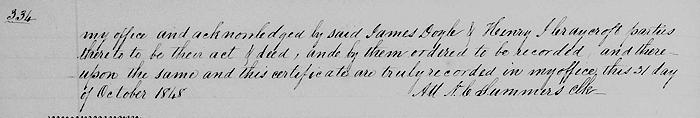 334
my office and acknowledged by said James Doyle & Henry S Graycroft parties
thereto to be their act & deed, and by them ordered to be recorded, and there-
upon the same and this certificate are truly recorded in my office, this 31 day
of October 1848
Att A. C Summers Clk